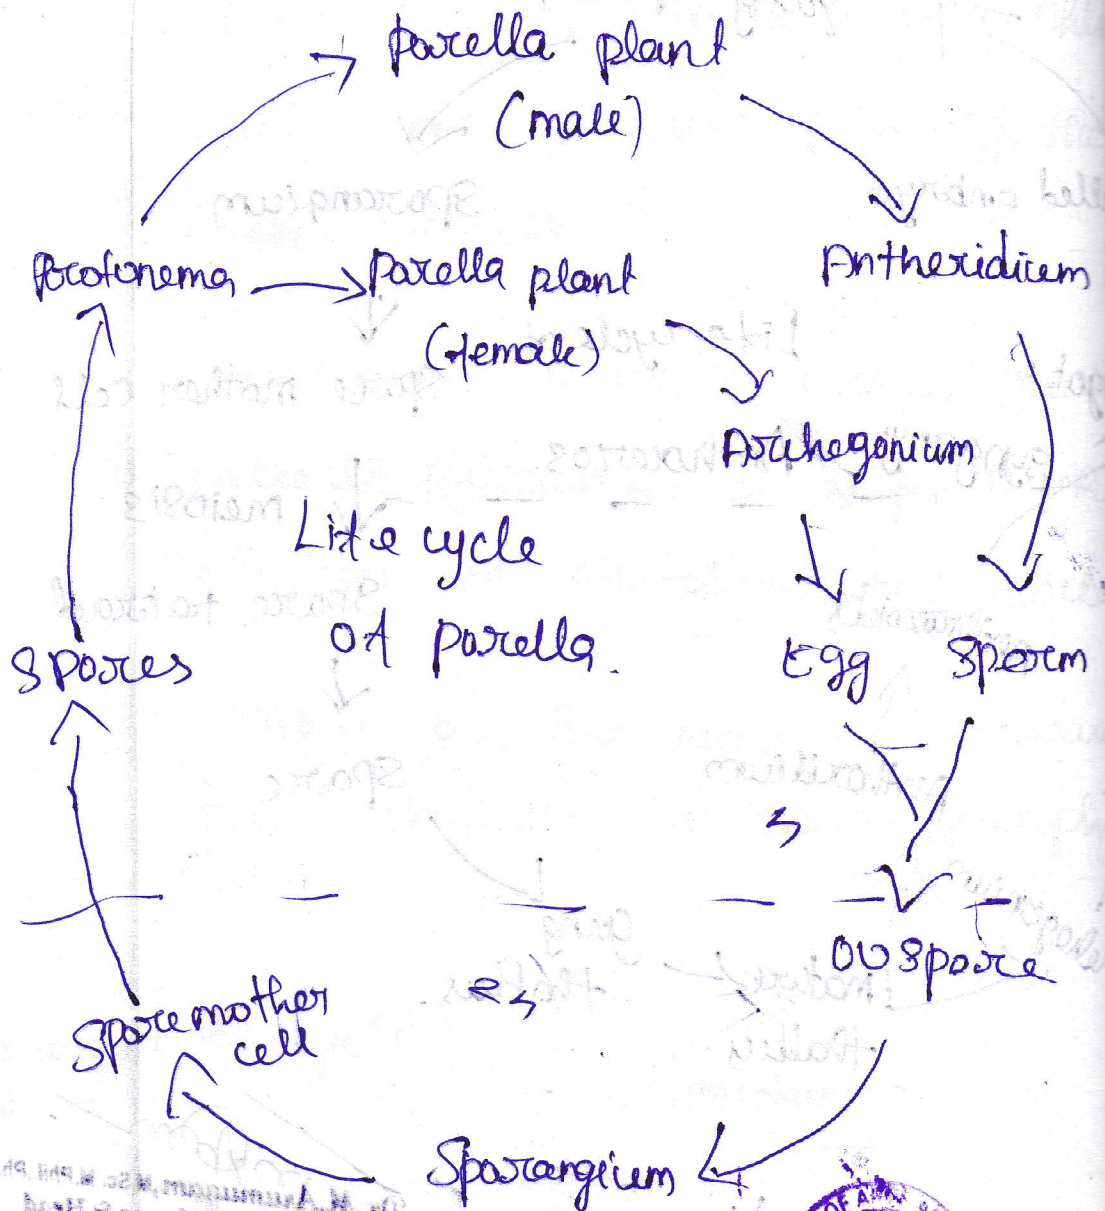 Porella plant
(male)
Protonema
Porella plant
(female)
Antheridium
Archegonium
Life cycle
of porella.
Egg
Sperm
Spores
Oospore
Sporemother
cell
Sporangium